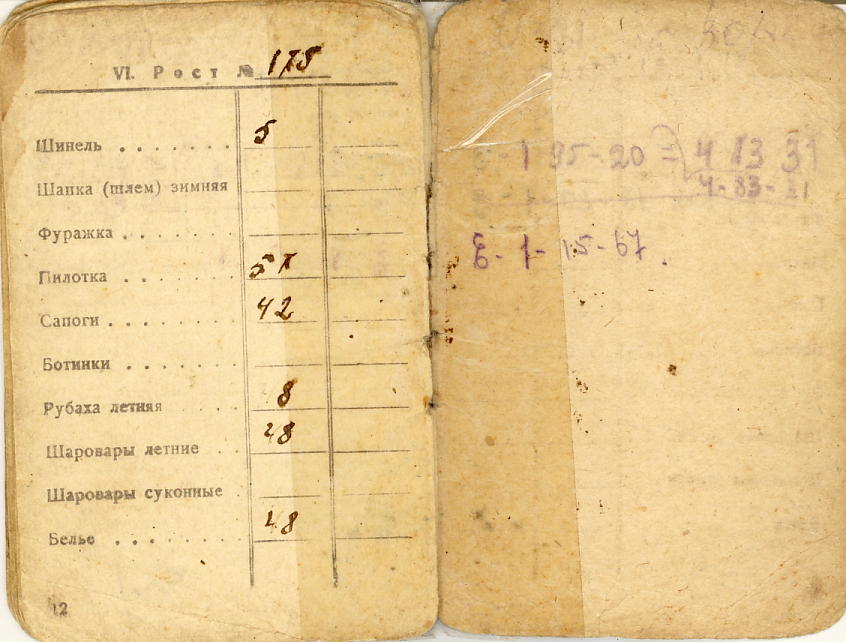 VI. Рост № 175
Шинель . . . . . . . 5
Шапка (шлем) зимняя
Фуражка . . . . . . .
Пилотка . . . . . . . 57
Сапоги . . . . . . . . 42
Ботинки . . . . . . .
Рубаха летняя . . . . 8
Шаровары летние . 48
Шаровары суконные .
Белье . . . . . . . . 48
12
1 95-20 = 4 13 31
4-83-21
Б-1-15-67.